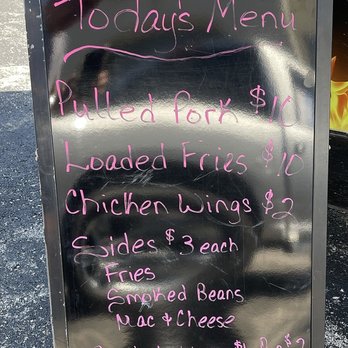 Today's Menu
Pulled Pork $10
Loaded Fries $10
Chicken Wings $2
Sides $3 each
Fries
Smoked Beans
Mac & Cheese